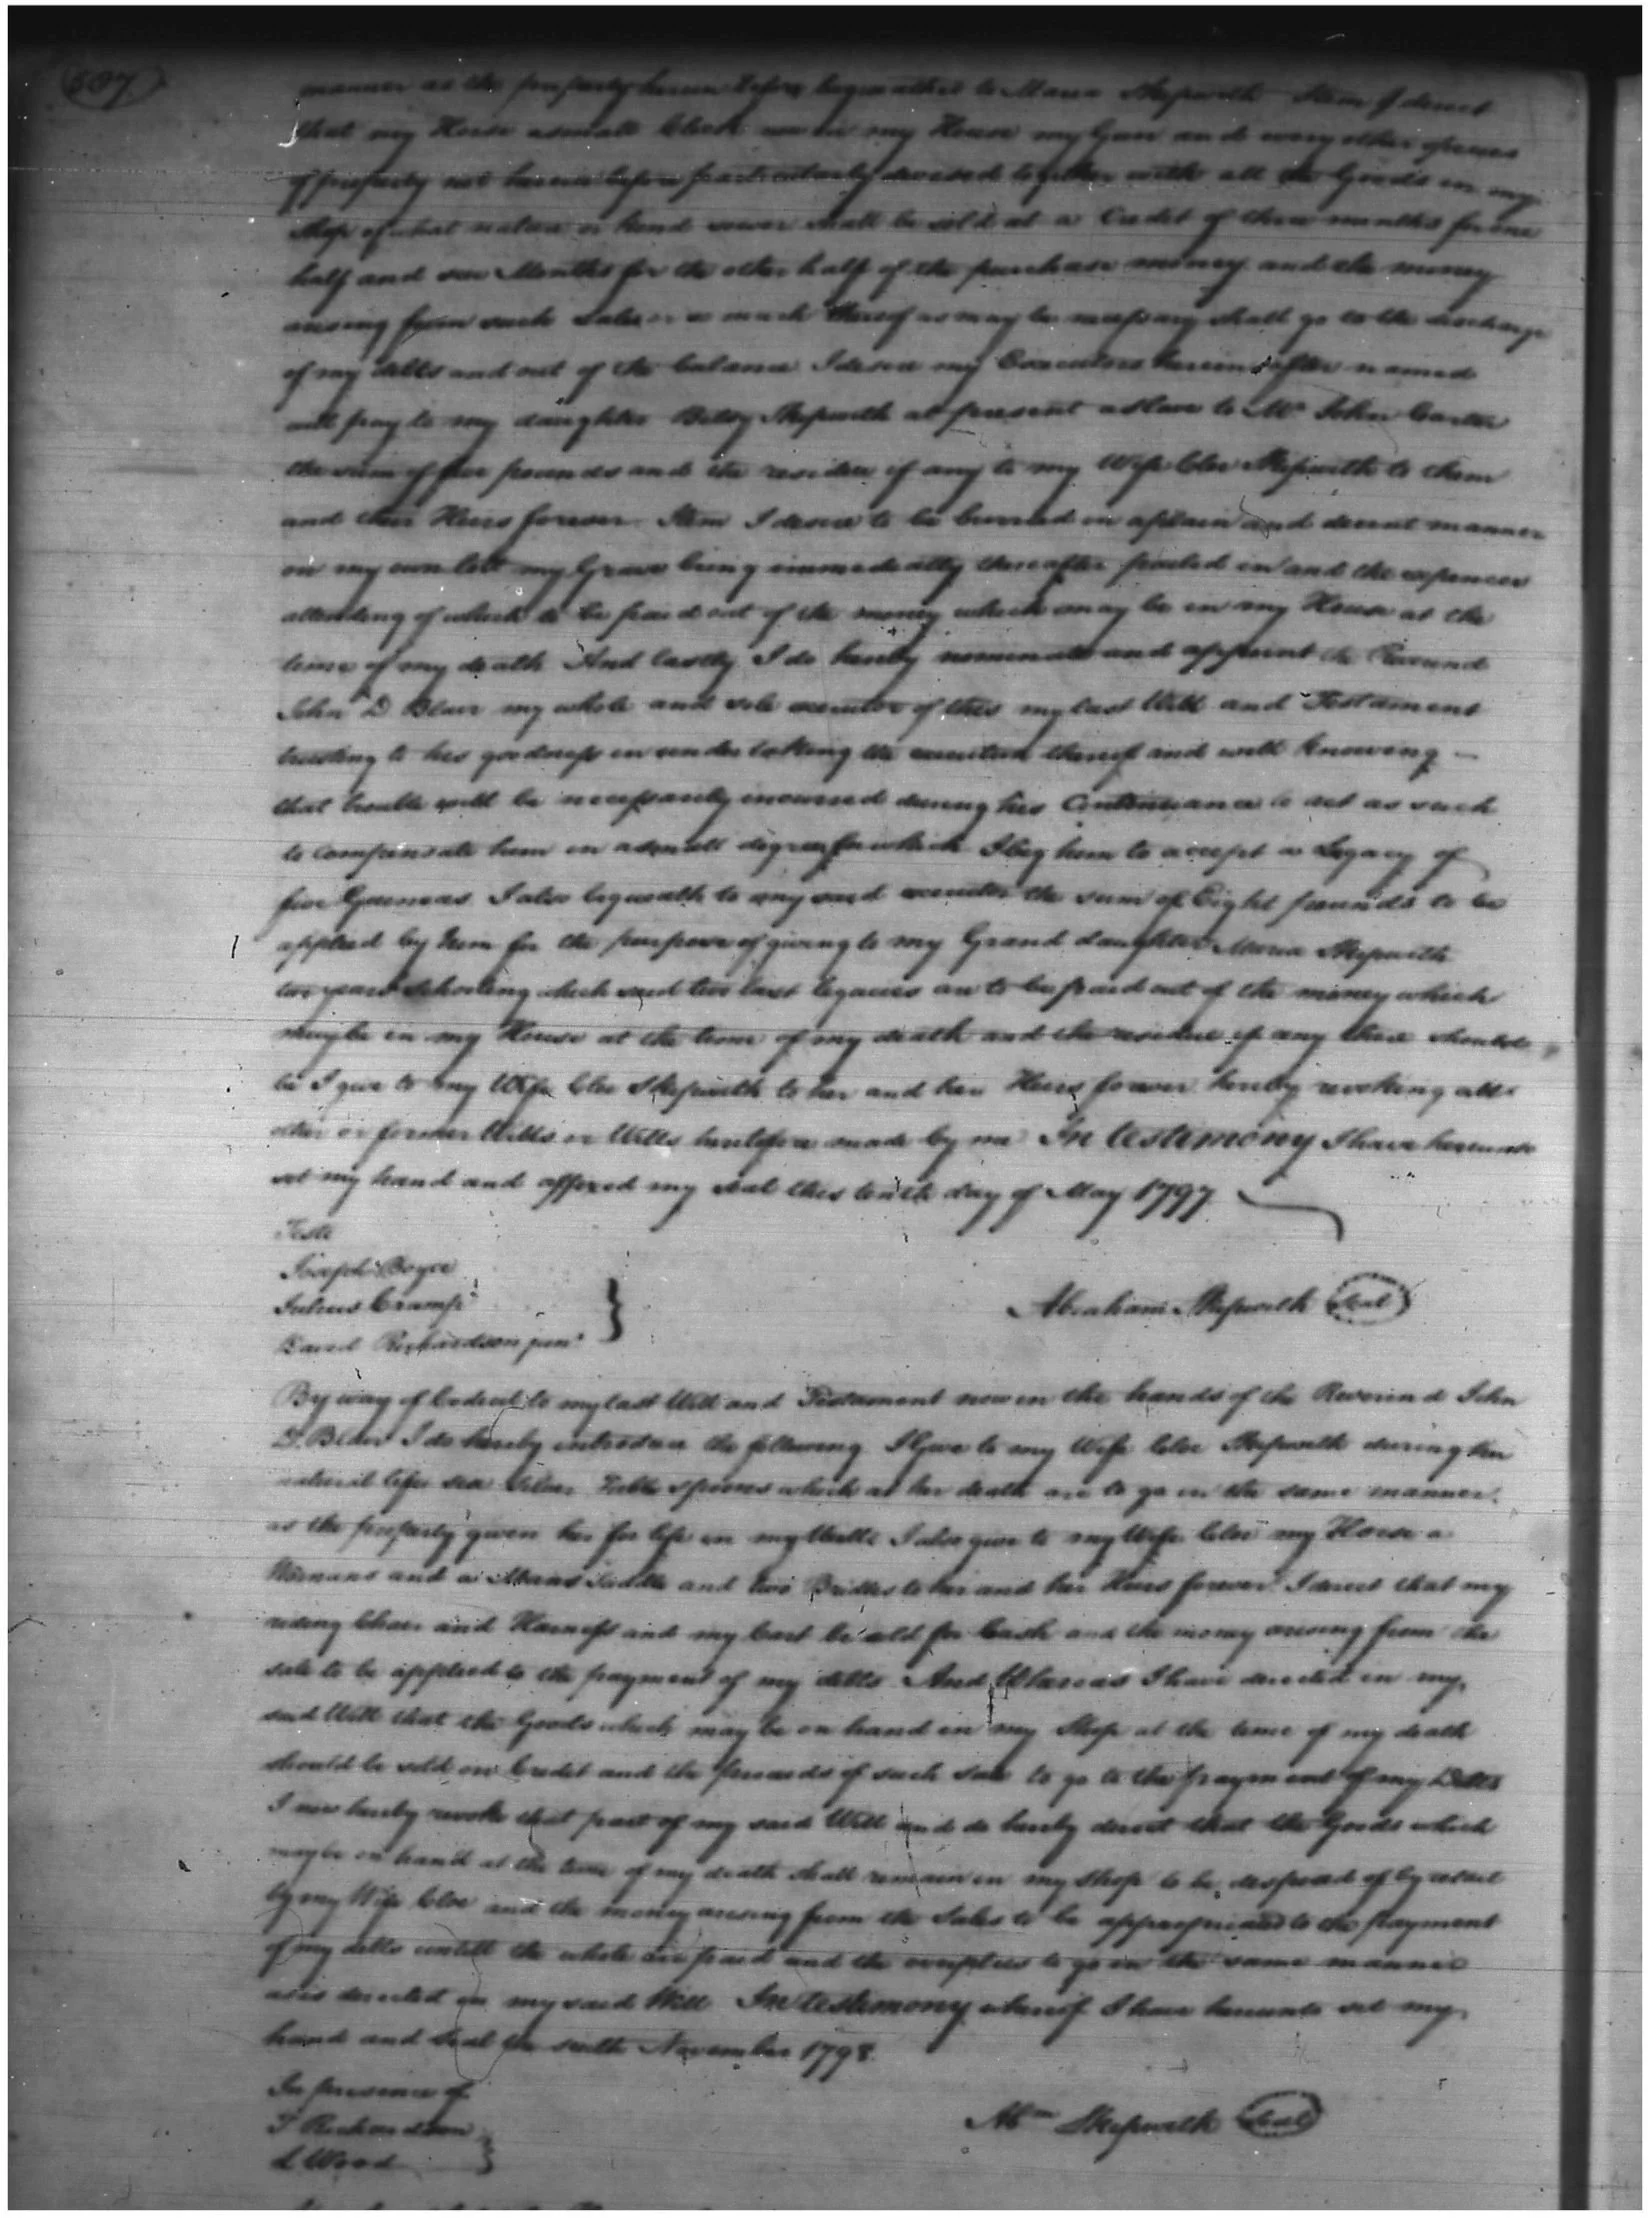 manner as the property herein before bequeathed to Maria Skipwith Item I direct
that my Horse a small Clock now in my House my Gun and every other species
of property not herein before particularly devised together with all the Goods in my
Shop of what nature or kind soever shall be sold at a Credit of three months for one
half and six Months for the other half of the purchase money and the money
arising from such Sales or so much thereof as may be necessary shall go to the discharge
of my debts and out of the balance I desire my Executors herein after named
will pay to my daughter Betsy Skipwith at present a slave to Mr John Carter
the sum of five pounds and the residue if any to my Wife Cloe Skipwith to them
and their Heirs forever Item I desire to be burried in a plain and decent manner
on my own lott my Grave being immediatly thereafter pailed in and the expences
attending of which to be paid out of the money which may be in my House at the
time of my death And lastly I do hereby nominate and appoint the Reverend
John D Blair my whole and sole executor of this my last Will and Testament
trusting to his goodness in undertaking the execution thereof and well knowing
that trouble will be necessarily incurred during his Continuance to act as such
to compensate him in a small degree for which I beg him to accept a Legacy of
five Guineas I also bequeath to my said executor the sum of Eight pounds to be
applied by him for the purpose of giving to my Grand daughter Maria Skipwith
two years Schooling which said two last legacies are to be paid out of the money which
may be in my House at the time of my death and the residue if any there should
be I give to my Wife Cloe Skipwith to her and her Heirs forever hereby revoking all
other or former Wills or Wills heretofore made by me In testimony I have hereunto
set my hand and affixed my seal this tenth day of May 1797
Teste
Joseph Boyce
Julius Cramp
David Richardson junr
Abraham Skipwith Seal
By way of Codicil to my last Will and Testament now in the hands of the Reverend John
D. Blair I do hereby introduce the following I Give to my Wife Cloe Skipwith during her
natural life six Silver Table spoons which at her death are to go in the same manner
as the property given her for life in my Will I also give to my Wife Cloe my Horse a
Womans and a Mans Saddle and two Bridles to her and her Heirs forever I direct that my
riding Chair and Harness and my Cart be sold for Cash and the money arising from the
sale to be applied to the payment of my debts And Whereas I have directed in my
said Will that the Goods which may be on hand in my Shop at the time of my death
should be sold on Credit and the proceeds of such sale to go to the payment of my Debts
I now hereby revoke that part of my said Will and do hereby direct that the Goods which
may be on hand at the time of my death shall remain in my Shop to be disposed of by retail
by my Wife Cloe and the money arising from the Sales to be appropriated to the payment
of my debts untill the whole are paid and the overplus to go in the same manner
as is directed in my said Will In testimony whereof I have hereunto set my
hand and Seal the sixth November 1798
In presence of
Richardson
L Wood
Abm Skipwith Seal